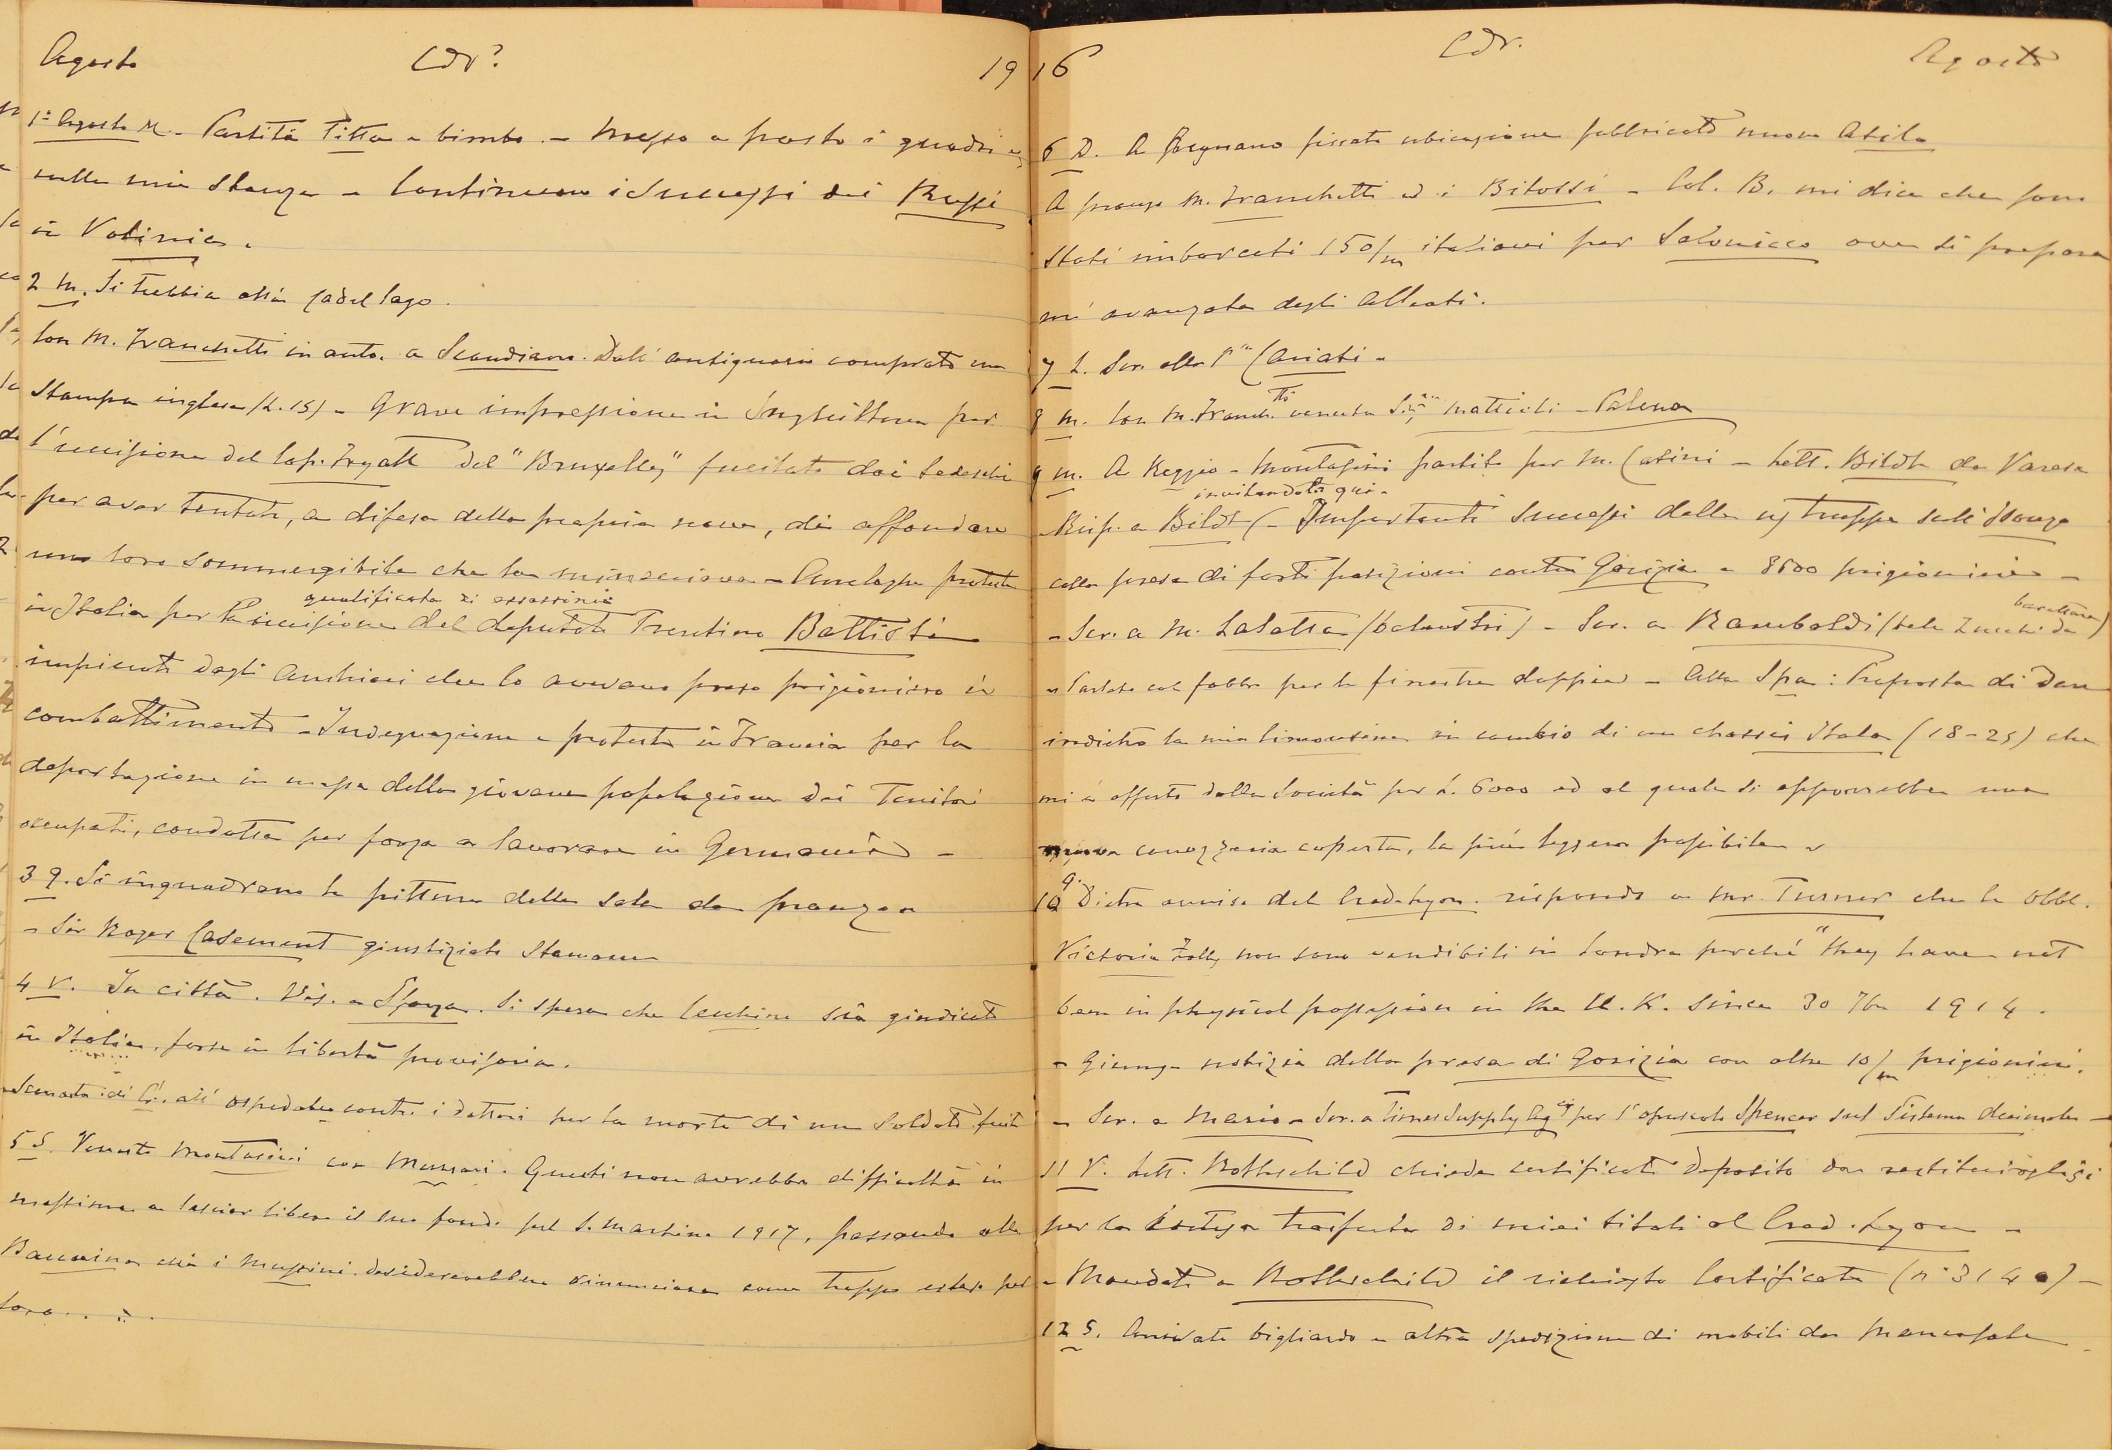 Agosto Cdr. 19
1º Agosto M. - Partita Titta e bimbe. - Messo a posto i quadri
nella mia stanza - Continuano i successi dei Russi
in Volinia.
2 M. Si trebbia alla Ca del lago.
Con M. Franchetti in auto a Scandiano. Dall'antiquario comprato una
Stampa inglese (L. 15) - Grave impressione in Inghilterra per
l'uccisione del Cap. Fryatt del "Bruxelles" fucilato dai tedeschi
per aver tentato, a difesa della propria nave, di affondare
uno loro sommergibile che la minacciava - Analoghe proteste
qualificata di assassinio
in Italia per l'uccisione del deputato Trentino Battisti
impiccato dagli Austriaci che lo avevano preso prigioniero in
combattimento - Indegnazione e proteste in Francia per la
deportazione in massa della giovane popolazione dei Territori
occupati, condotta per forza a lavorare in Germania -
3 G. Si inquadrano le pitture della sala da pranzo
- Sir Roger Casement giustiziato stamane
4 V. In città. Vis. a Sforza. Si spera che Cecchino sia giudicato
in Italia, forse in libertà provvisoria.
all'ospedale contro i dottori per la morte di un soldato
5 S. Venuto Montasini con Questi non avrebbe difficoltà in
massima a lasciar libero il suo fondo pel S. Martino 1917, passando alla
che i desidererebbero rinunciare come troppo esteso per
loro.
16 Cdr. Agosto
6 D. A fissata ubicazione fabbricato nuovo Asilo
A pranzo M. Franchetti ed i Bitossi - Col. B. mi dice che sono
stati imbarcati 150/m italiani per Salonicco ove si prepara
un'avanzata degli Alleati.
7 L. Scr. alla
8 M. Con M. Franch.tti venuta Mattioli - Palena
9 M. A Reggio - Montasini partito per M. Catini - Lett. Bildt da Varese
invitandola qui.
Risp. a Bildt - Importanti successi delle ns/ truppe sull'Isonzo
colla presa di forti posizioni contro Gorizia e 8500 prigionieri -
- Scr. a M. Lasatta (balaustri) - Scr. a Ramboldi
- Parlato col fabbro per le finestre doppie - Alla Spa: Proposta di dare
indietro la mia limousine in cambio di un chassis Itala (18-25) che
mi è offerto dalla Società per L. 6000 ed al quale si apporrebbe una
nuova carrozzeria coperta, la più leggera possibile -
10 G. Dietro avviso del Cred. Lyon. rispondo a Mr. Turner che le Obbl.
Victoria Falls non sono vendibili in Londra perché "they have not
been in physical possession in the U. K. since 30 7bre 1914.
- Giunge notizia della presa di Gorizia con oltre 10/m prigionieri.
- Scr. a Mario - Scr. a Times Supply Agcy per l'opuscolo Spencer sul Sistema decimale -
11 V. Lett. Rothschild chiede certificato deposito da restituirglisi
per la trasferta di miei titoli al Cred. Lyon -
- Mandato a Rothschild il richiesto Certificato
12 S. Arrivato bigliardo e altra spedizione di mobili da Mancasale